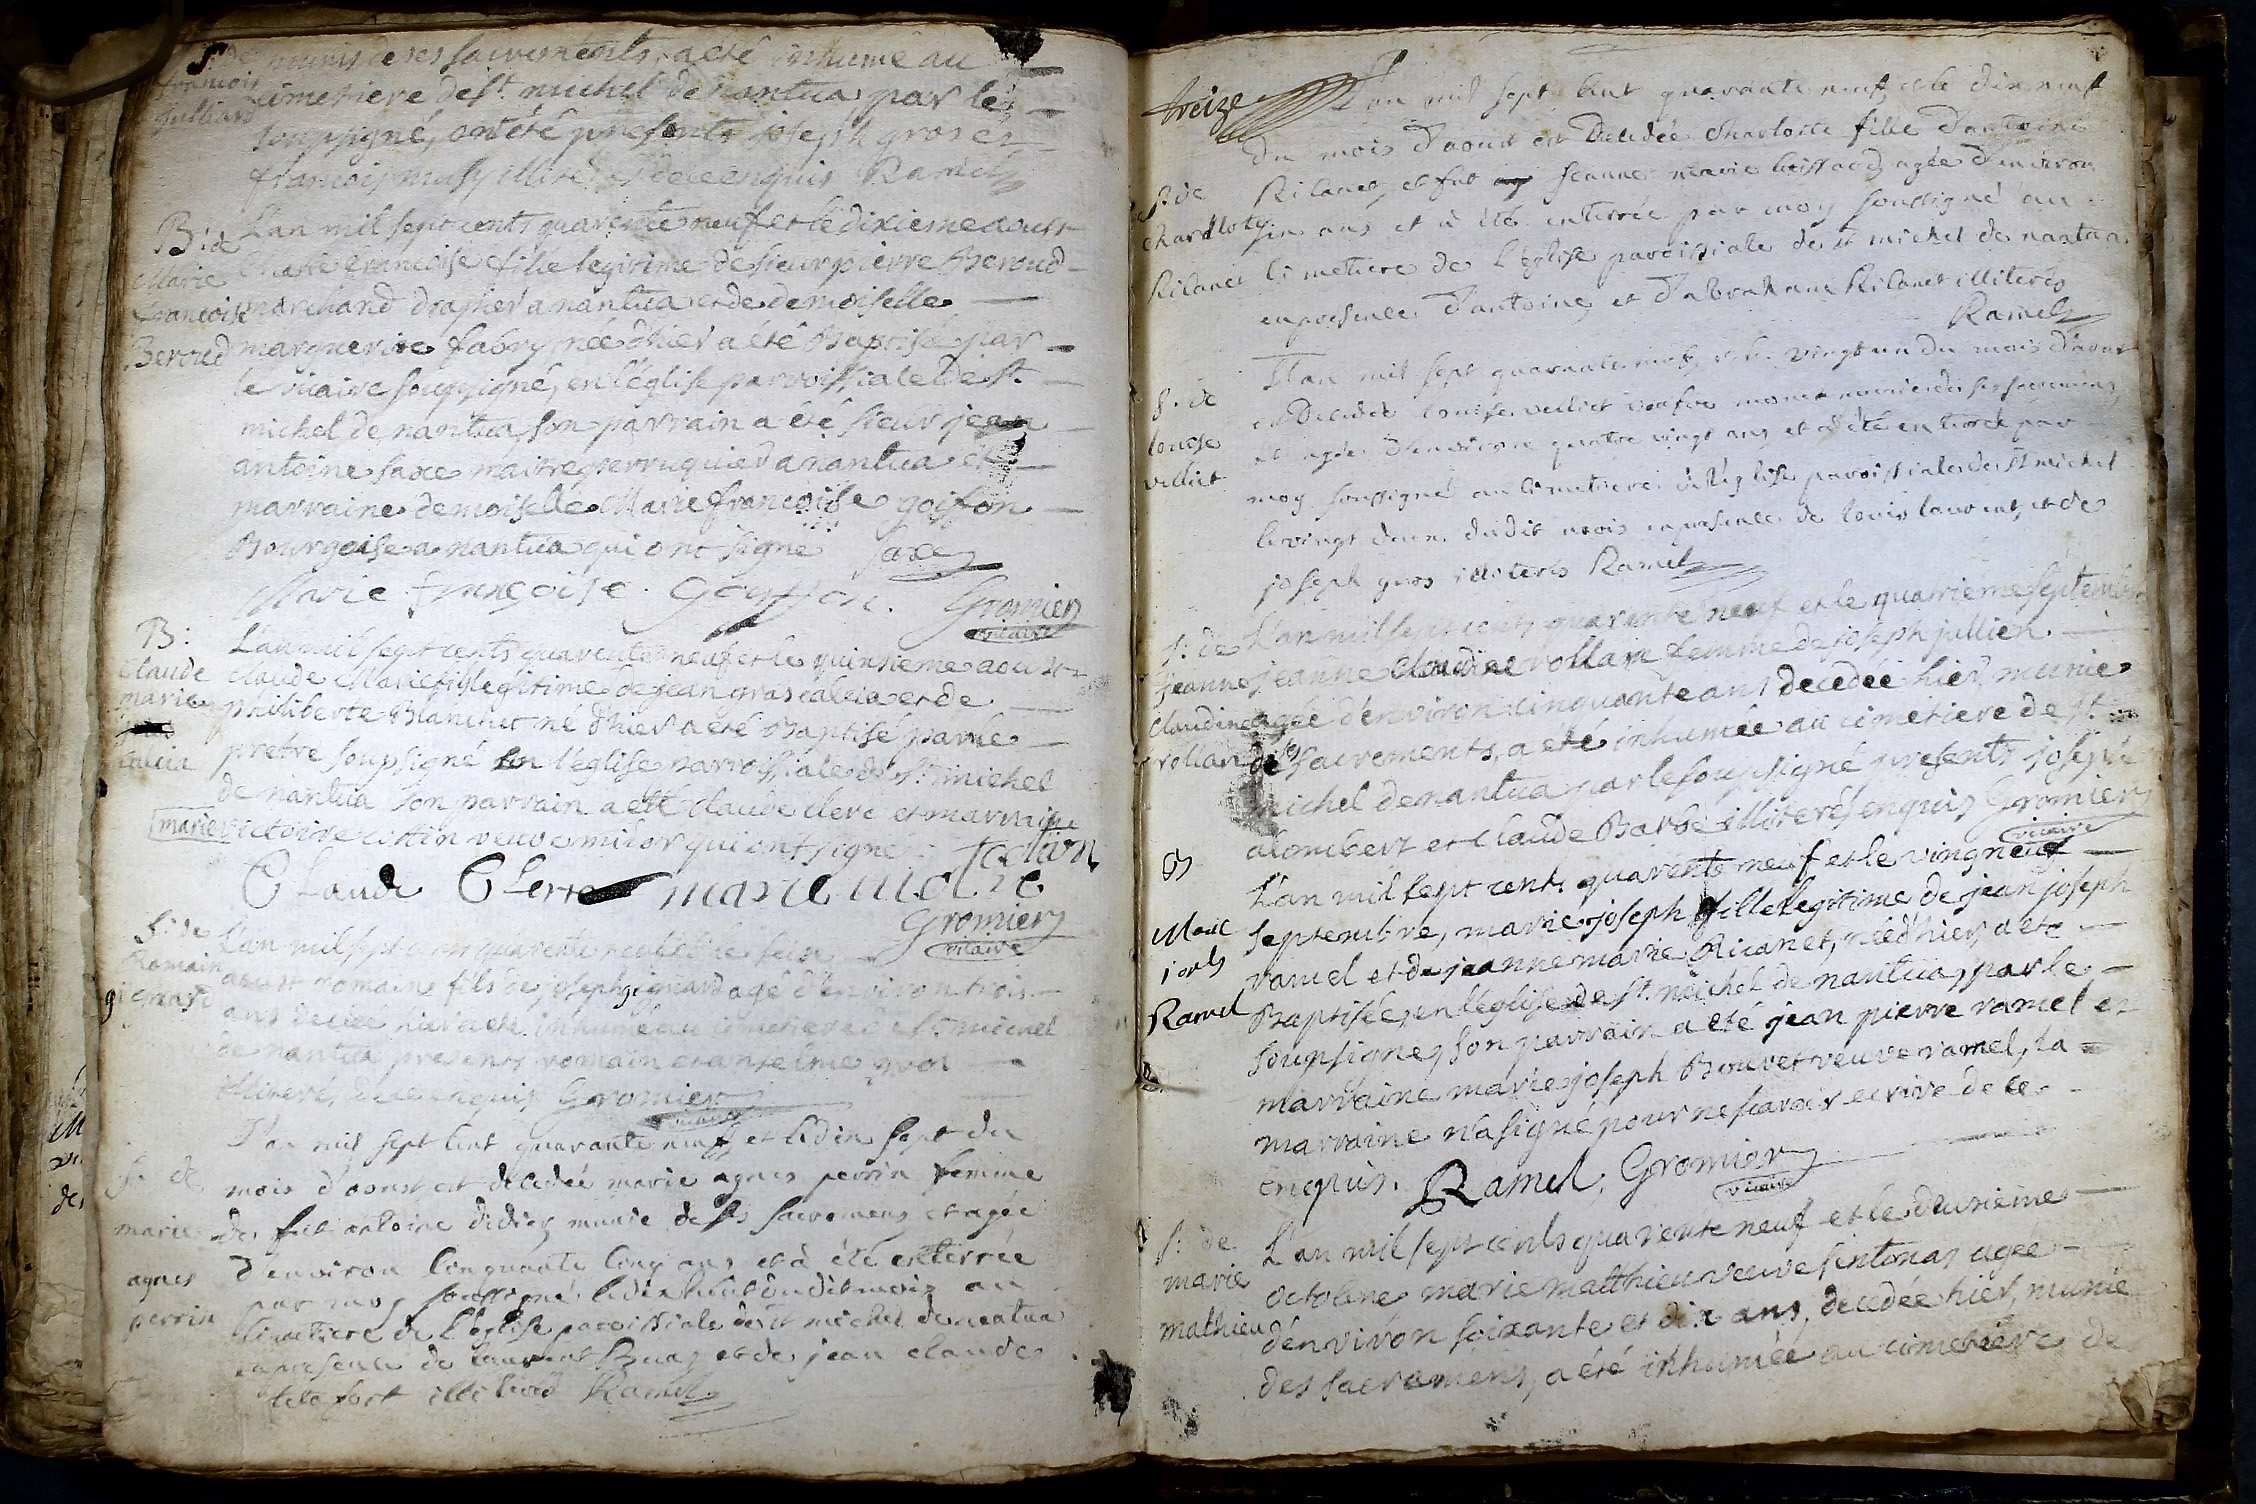 S: de munis de ses sacrements, a eté inhumé au
francois cimetiere de st. michel de nantua par le
Julliard soupsigné, ont été presents joseph gros et
francois musy illiterés de ce enquis Ramel
B: de L'an mil sept cents quarente neuf et le dixieme aoust
Marie marie francoise fille legitime de sieur pierre Beroud
francoise marchand drapier a nantua et de demoiselle
Berrod marguerite fabry, née d'hier a été Baptisé par
le vicaire soupsigné, en l'église parroissiale de st.
michel de nantua, son parrain a été sieur jean
antoine saxe maitre perruquier a nantua et
marraine demoiselle Marie francoise goifon
Bourgoise a nantua qui ont signé Saxe
Marie françoise Goyffon. Gromier
vicaire
B: L'an mil sept cents quarente neuf et le quinsieme aoust
Claude claude Marie fils legitime de jean et de
marie philiberte Blanchet né d'hier a été Baptisé par le
pretre soupsigné en l'église parroissiale de st. michel
de nantua son parrain a eté claude clerc et marraine
marie victoire veuve qui ont signé
Claude Clerc marie
Gromier
vicaire
S: de L'an mil sept cents quarente neuf et le seize
Romain aoust romain fils de joseph gignard agé d'environ trois
gignard ans decedé hier a eté inhumé au cimetiere de st. michel
de nantua presents romain et antelme gros
illiterés, de ce enquis Gromier
vicaire
L'an mil sept cent quarante neuf et le dix sept du
S. de mois d'aoust est decedée marie agnes perrin femme
marie de feu antoine didier munie de ses sacremens et agée
agnes d'environ cinquante cinq ans et à été enterrée
perrin par moy soussigné le dix huit dudit mois au
cimetiere de l'église paroissiale de st michel de nantua
en presence de laurent Buaz et de jean claude
illiterés Ramel
treize L'an mil sept cent quarante neuf, et le dix neuf
du mois d'aoust est decedée charlotte fille d'antoine
S: de Rilanet, et fut jeanne marie agée d'environ
charlote six ans et à été enterrée par moy soussigné au
Rilanet cimetiere de l'église paroissiale de st michel de nantua
en presence d'antoine et d'abraham Rilanet illiterés
Ramel
L'an mil sept quarante neuf, et le vingt un du mois d'aoust
S. de est decedée louise velliet veufve monet munie de ses sacremens
louise et agée d'environ quatre vingt ans et a été enterrée par
velliet moy soussigné au cimetiere de l'église paroissiale de st michel
le vingt deux dudit mois en presence de louis laurent, et de
joseph gros illiterés Ramel
S: de L'an mil sept cents quarente neuf et le quatrieme septembre
jeanne jeanne claudine rollan femme de joseph jullien
claudine agée d'environ cinquante ans decedée hier, munie
rollan de ses sacrements, a été inhumée au cimetiere de st.
michel de nantua par le soupsigné presents joseph
alombert et claude Barbe illiterés enquis Gromier
vicaire
B L'an mil sept cents quarente neuf et le vingneuf
Marie septembre, marie joseph fille legitime de jean joseph
josph ramel et de jeanne marie Ricanet, née d'hier, a été
Ramel Baptisée en l'église de st. michel de nantua, par le
soupsigné, son parrain a eté jean pierre ramel et
marraine marie joseph Bouvet veuve ramel, la
marraine n'a signé pour ne scavoir ecrire de ce
enquis. Ramel, Gromier
vicaire
S: de L'an mil sept cents quarente neuf et le deuxieme
marie octobre marie matthieu veuve sintonas agée
mathieu d'environ soixante et dix ans, decedée hier, munie
des sacremens, a été inhumée au cimetiere de